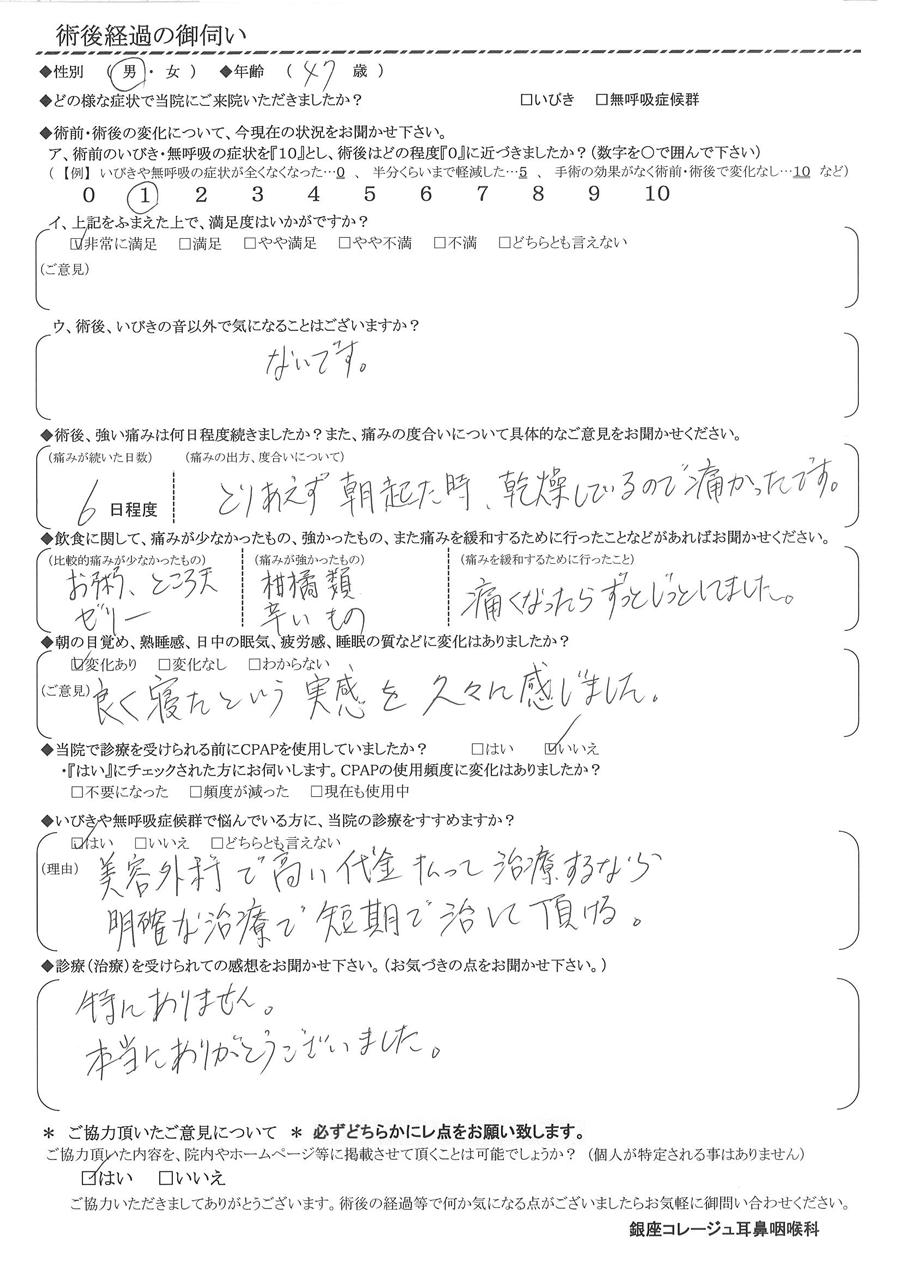 術後経過の御伺い
◆性別 ( 男 ・ 女 ) ◆年齢 ( 47 歳 )
◆どの様な症状で当院にご来院いただきましたか？ □いびき □無呼吸症候群
◆術前・術後の変化について、今現在の状況をお聞かせ下さい。
ア、術前のいびき・無呼吸の症状を『10』とし、術後はどの程度『0』に近づきましたか？(数字を〇で囲んで下さい)
(【例】 いびきや無呼吸の症状が全くなくなった…0 、 半分くらいまで軽減した…5 、 手術の効果がなく術前・術後で変化なし…10 など)
0 1 2 3 4 5 6 7 8 9 10
イ、上記をふまえた上で、満足度はいかがですか？
☑非常に満足 □満足 □やや満足 □やや不満 □不満 □どちらとも言えない
(ご意見)
ウ、術後、いびきの音以外で気になることはございますか？
ないです。
◆術後、強い痛みは何日程度続きましたか？また、痛みの度合いについて具体的なご意見をお聞かせください。
(痛みが続いた日数) (痛みの出方、度合いについて)
6 日程度 とりあえず朝起た時、乾燥しているので痛かったです。
◆飲食に関して、痛みが少なかったもの、強かったもの、また痛みを緩和するために行ったことなどがあればお聞かせください。
(比較的痛みが少なかったもの) (痛みが強かったもの) (痛みを緩和するために行ったこと)
お粥、ところ天 柑橘類 痛くなったらずっとじっとしてました。
ゼリー 辛いもの
◆朝の目覚め、熟睡感、日中の眠気、疲労感、睡眠の質などに変化はありましたか？
☑変化あり □変化なし □わからない
(ご意見) 良く寝たという実感を久々に感じました。
◆当院で診療を受けられる前にCPAPを使用していましたか？ □はい ☑いいえ
・『はい』にチェックされた方にお伺いします。CPAPの使用頻度に変化はありましたか？
□不要になった □頻度が減った □現在も使用中
◆いびきや無呼吸症候群で悩んでいる方に、当院の診療をすすめますか？
☑はい □いいえ □どちらとも言えない
(理由) 美容外科で高い代金払って治療するなら
明確な治療で短期で治して頂ける。
◆診療(治療)を受けられての感想をお聞かせ下さい。(お気づきの点をお聞かせ下さい。)
特にありません。
本当にありがとうございました。
＊ ご協力頂いたご意見について ＊ 必ずどちらかにレ点をお願い致します。
ご協力頂いた内容を、院内やホームページ等に掲載させて頂くことは可能でしょうか？ (個人が特定される事はありません)
☑はい □いいえ
ご協力いただきましてありがとうございます。術後の経過等で何か気になる点がございましたらお気軽に御問い合わせください。
銀座コレージュ耳鼻咽喉科